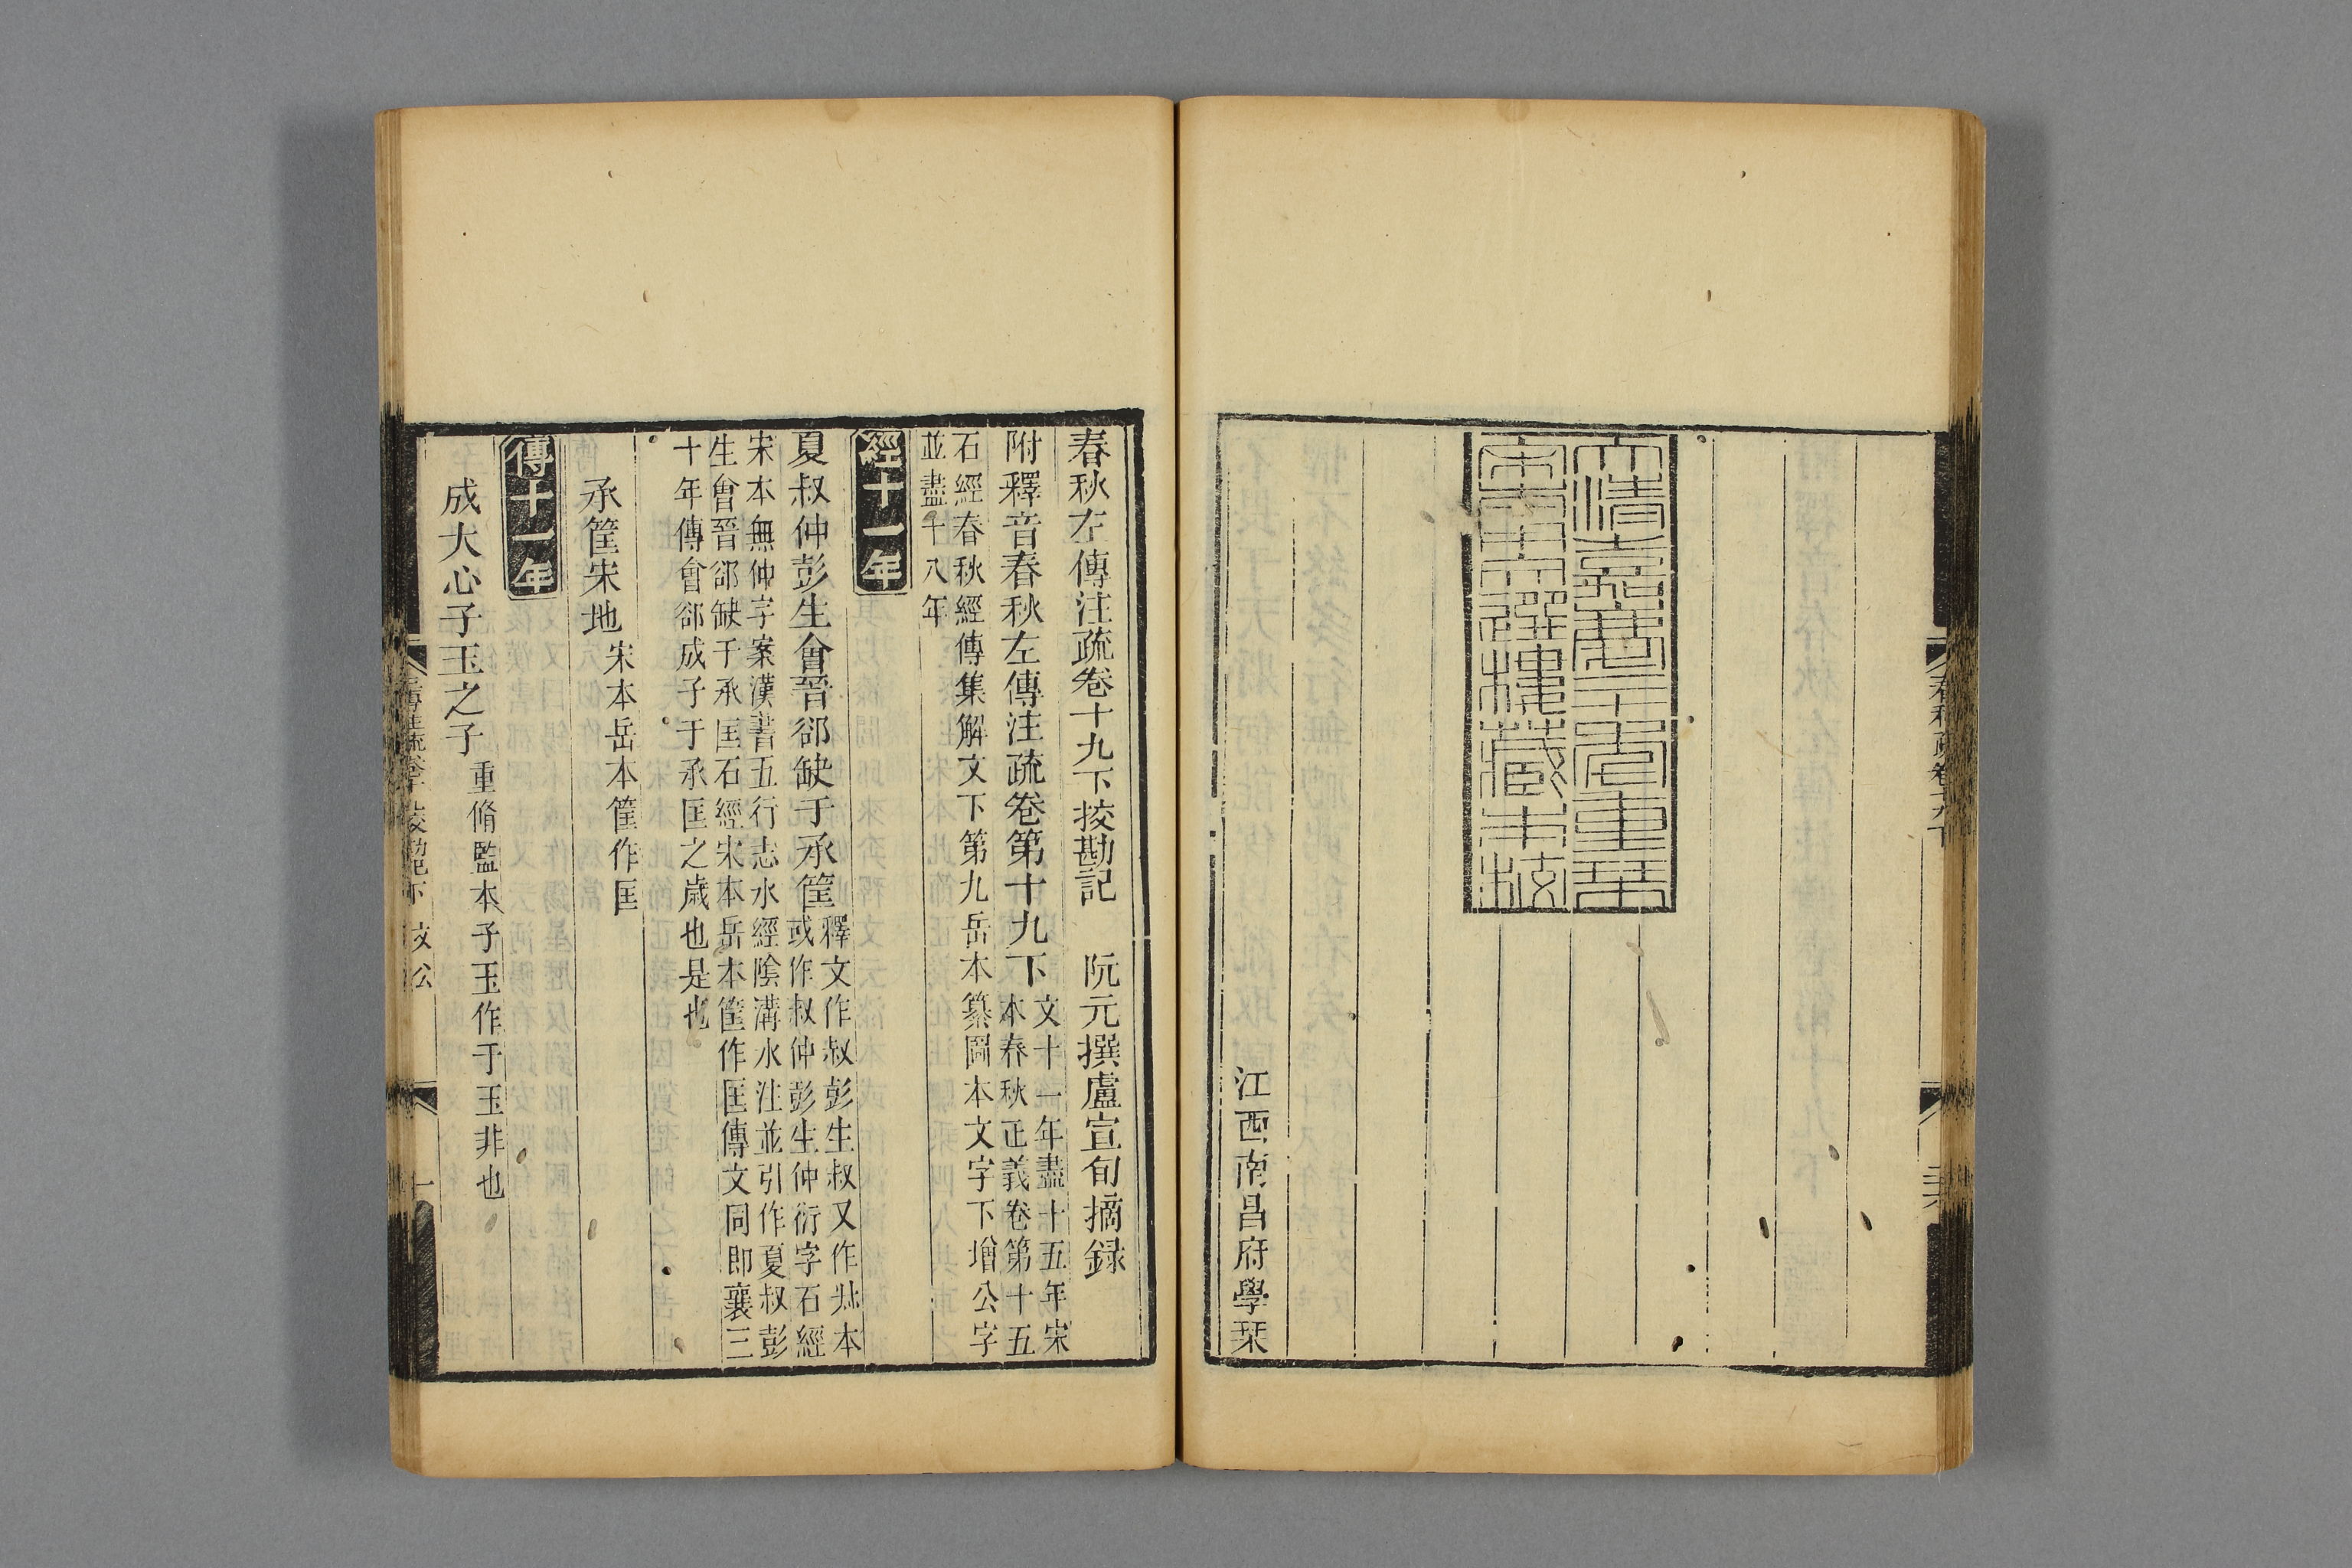 春秋疏卷十九下
大清嘉慶二十年重栞
宋本用文選樓藏本校
江西南昌府學栞
春秋左傳注疏卷十九下挍勘記　阮元撰盧宣旬摘録
附釋音春秋左傳注疏卷第十九下
文十一年盡十五年宋
本春秋正義卷第十五
石經春秋經傳集解文下第九岳本纂圖本文字下增公字
並盡十八年
經十一年
夏叔仲彭生會晉郤缺于承筐
釋文作叔彭生叔又作尗本
或作叔仲彭生仲衍字石經
宋本無仲字案漢書五行志水經陰溝水注並引作夏叔彭
生會晉郤缺于承匡石經宋本岳本筐作匡傳文同即襄三
十年傳會郤成子于承匡之歲也是也
承筐宋地
宋本岳本筐作匡
傳十一年
成大心子玉之子
重脩監本子玉作于玉非也